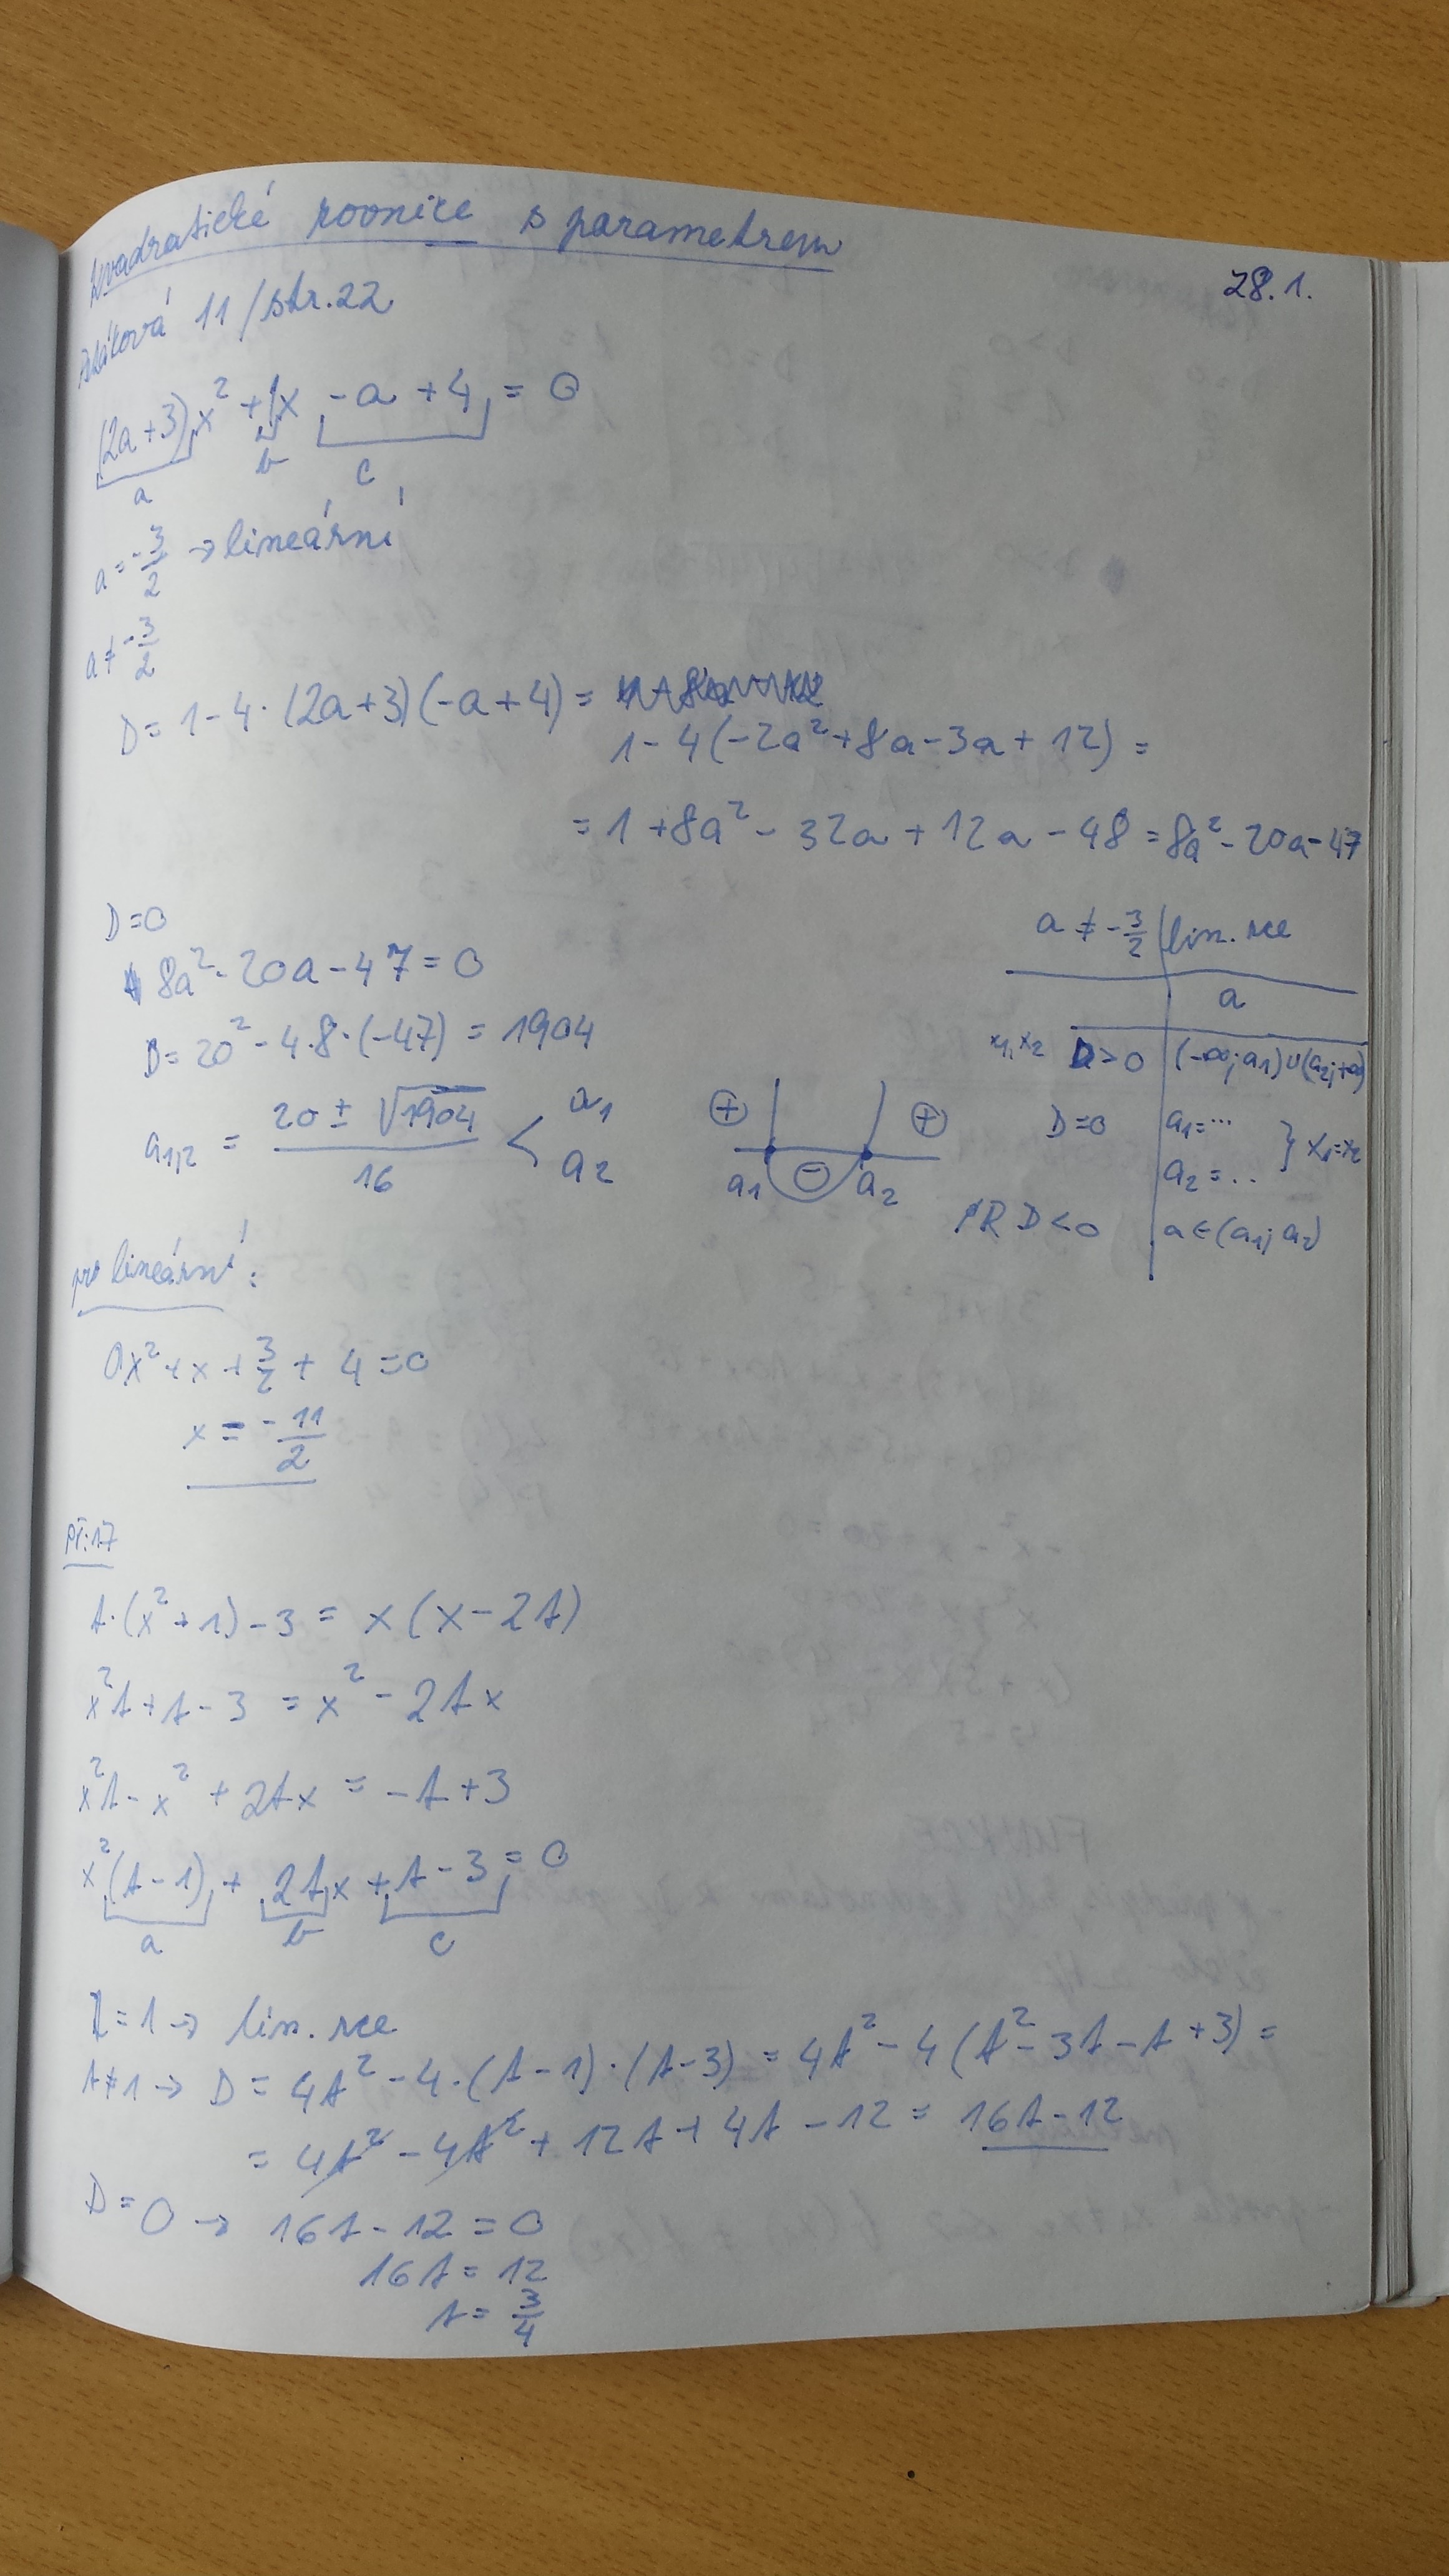 Kvadratické rovnice s parametrem
28.1.
11/str.22
(2a+3)x² + 1x - a + 4 = 0
a b c
a = -3/2 → lineární
a ≠ -3/2
D = 1 - 4·(2a+3)(-a+4) =
1 - 4(-2a² + 8a - 3a + 12) =
= 1 + 8a² - 32a + 12a - 48 = 8a² - 20a - 47
D = 0
8a² - 20a - 47 = 0
D = 20² - 4·8·(-47) = 1904
a1,2 = (20 ± √1904)/16 < a1 a2
⊕ ⊖ ⊕
a1 a2
a ≠ -3/2 | lin. rce
a
x1, x2 D > 0 | (-∞; a1) ∪ (a2; +∞)
D = 0 | a1 = ... a2 = .. } x1 = x2
D < 0 | a ∈ (a1; a2)
pro lineární:
0x² + x + 3/2 + 4 = 0
x = -11/2
Př.17
t·(x² + 1) - 3 = x(x - 2t)
x²t + t - 3 = x² - 2tx
x²t - x² + 2tx = -t + 3
x²(t - 1) + 2tx + t - 3 = 0
a b c
t = 1 → lin. rce
t ≠ 1 → D = 4t² - 4·(t - 1)·(t - 3) = 4t² - 4(t² - 3t - t + 3) =
= 4t² - 4t² + 12t + 4t - 12 = 16t - 12
D = 0 → 16t - 12 = 0
16t = 12
t = 3/4